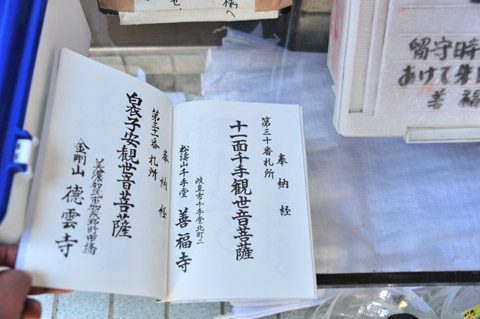 奉納経
第三十番札所
十一面千手観世音菩薩
岐阜市千手堂北町二
松濤山千手堂 善福寺
奉納経
第三十一番札所
白衣子安観世音菩薩
金剛山 徳雲寺
様へ
せ
留守時
あけて
善福